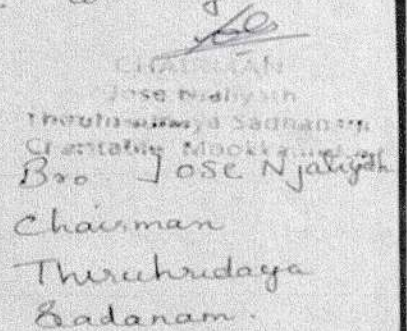 CHAIRMAN
Jose Njaliyath
Sadhanam
Bro Jose Njaliyath
Chairman
Thiruhridaya
Sadanam.